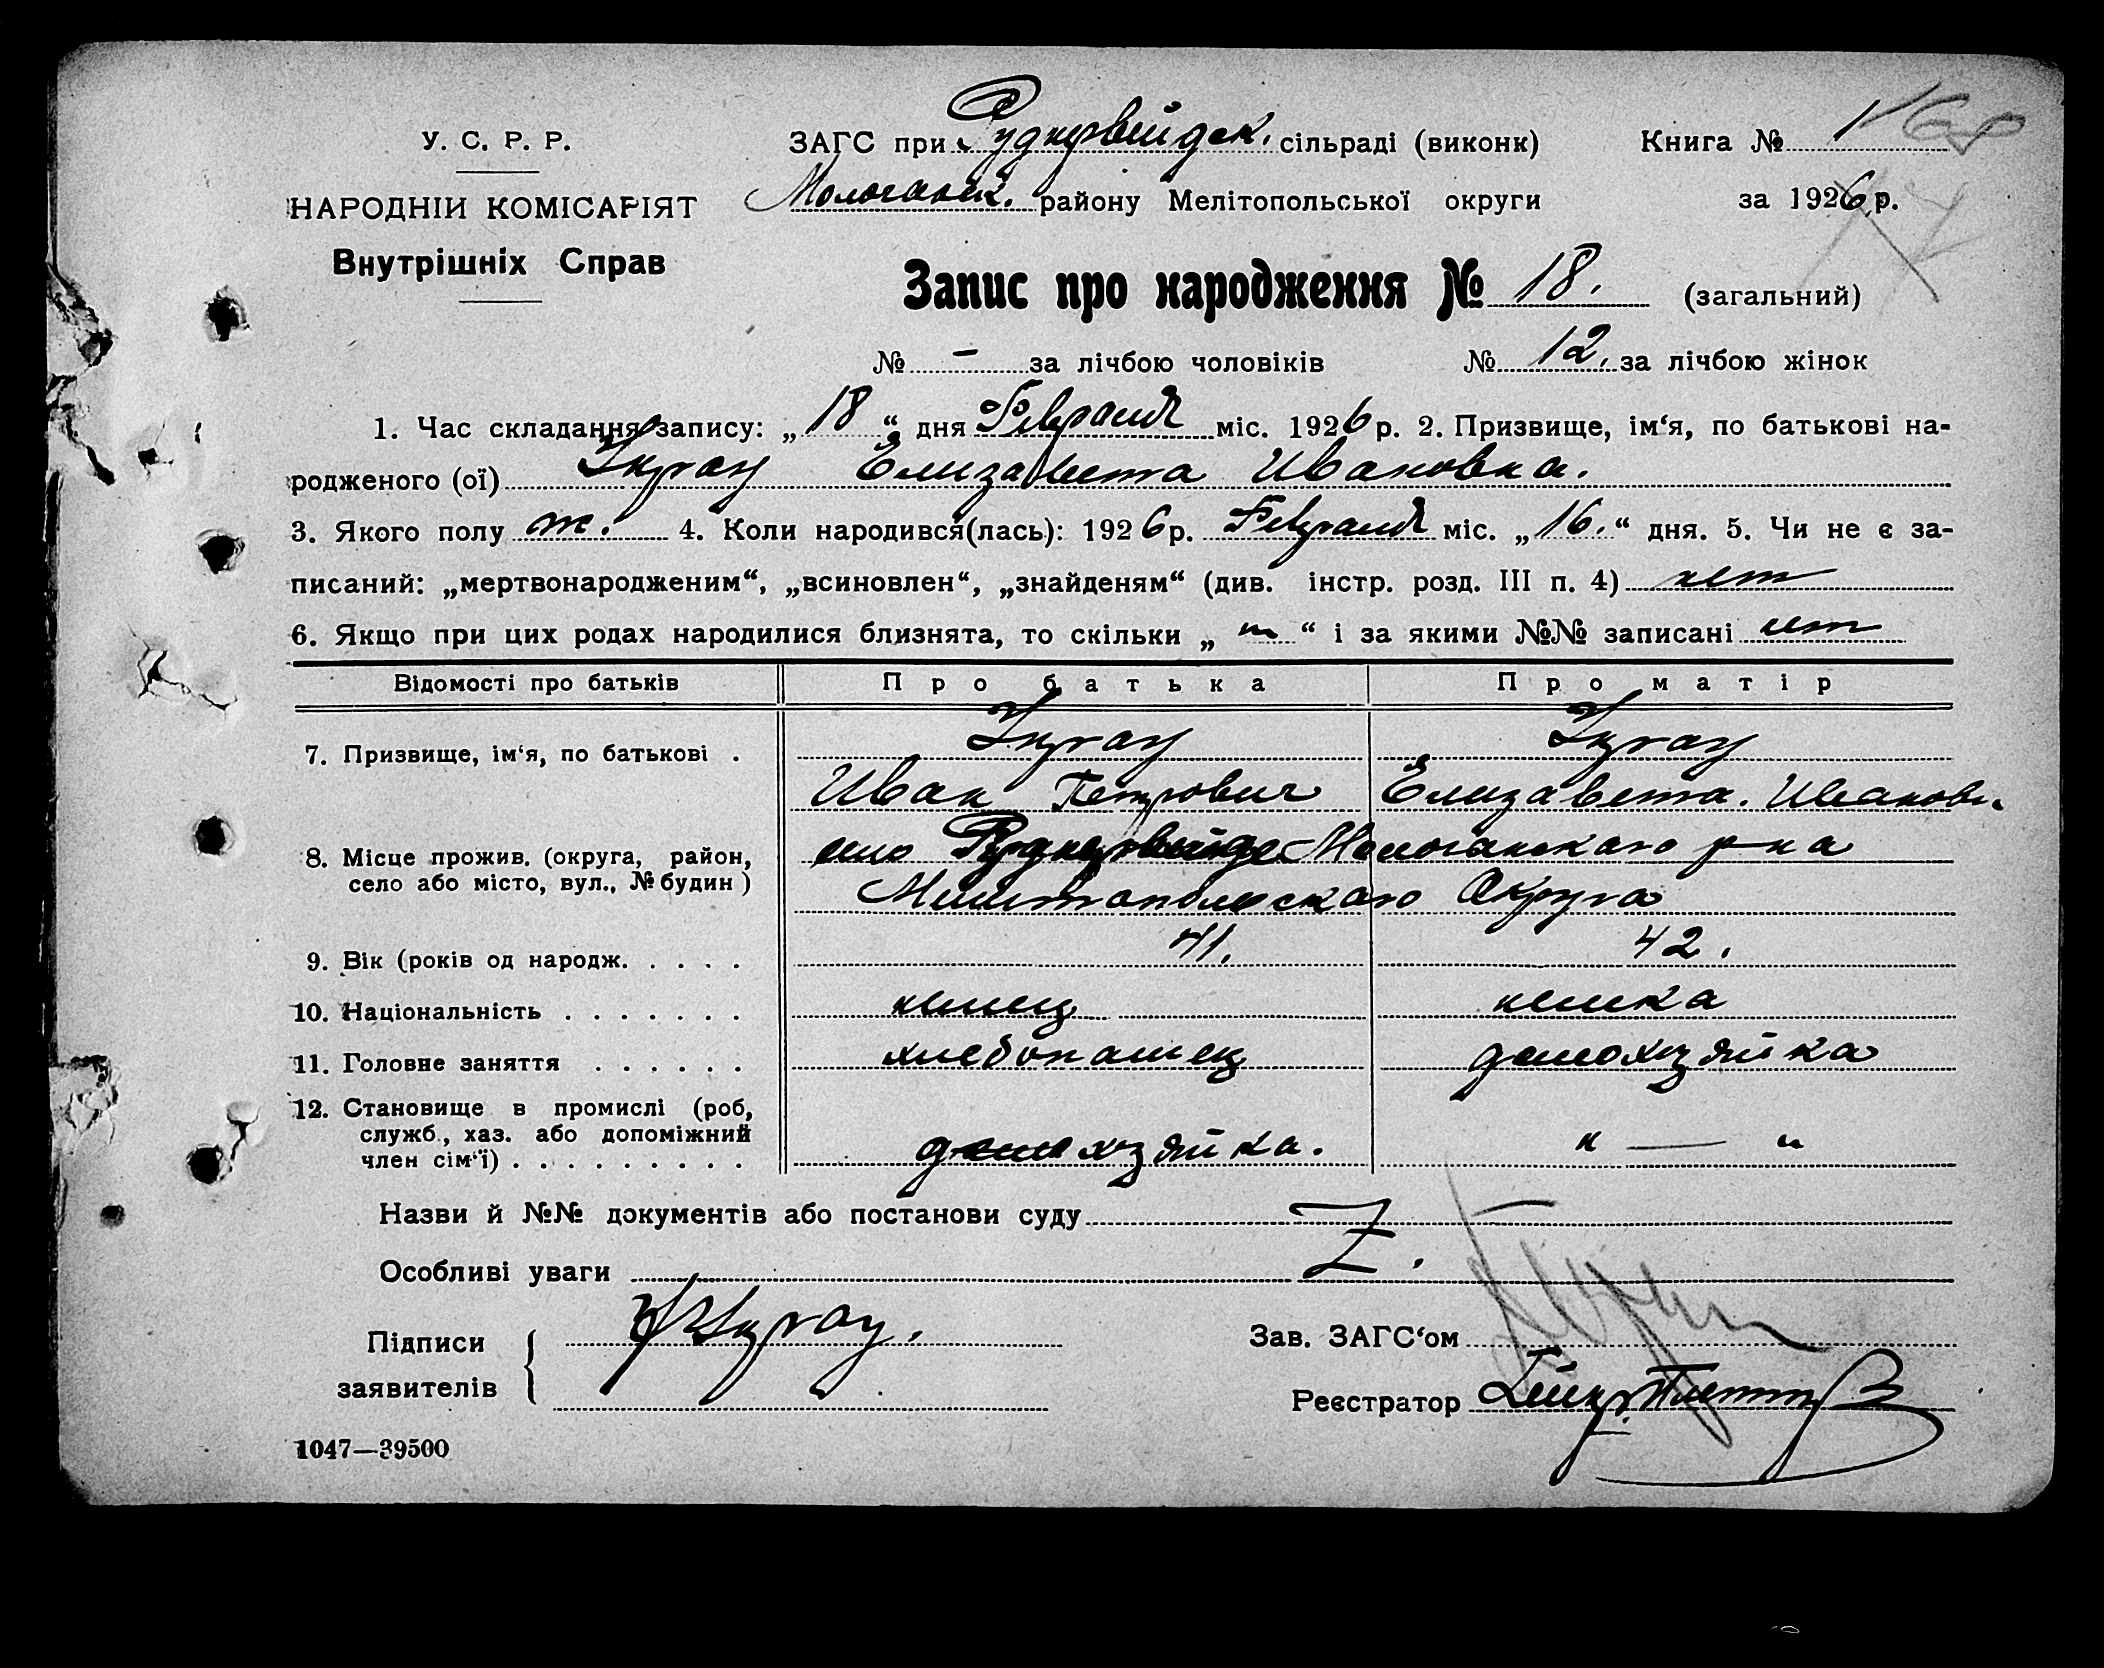 У. С. Р. Р.
НАРОДНІЙ КОМІСАРІЯТ
Внутрішніх Справ
ЗАГС при Рудкервейдск. сільраді (виконк) Книга № 1
Молочанск. району Мелітопольської округи за 1926 р.
Запис про народження № 18. (загальний)
№ – за лічбою чоловіків № 12. за лічбою жінок
1. Час складання запису: „ 18 “ дня міс. 1926 р. 2. Призвище, ім‘я, по батькові на-
родженого (ої) Елизавета Ивановна.
3. Якого полу ж. 4. Коли народився(лась): 1926 р. міс. „ 16. “ дня. 5. Чи не є за-
писаний: „мертвонародженим“, „всиновлен“, „знайденям“ (див. інстр. розд. III п. 4) нет
6. Якщо при цих родах народилися близнята, то скільки „ “ і за якими №№ записані нет
Відомості про батьків Про батька Про матір
7. Призвище, ім‘я, по батькові .
Иван Петрович Елизавета. Ивановн.
8. Місце прожив. (округа, район, село або місто, вул., № будин) село Молочанского р-на
Мелитопольского Округа
9. Вік (років од народж. . . . . 41. 42.
10. Національність . . . . . . . немец немка
11. Головне заняття . . . . . . хлебопашец домохозяйка
12. Становище в промислі (роб, служб., хаз. або допоміжний член сім‘ї) . . . . . . . . . домохозяйка. " — "
Назви й №№ документів або постанови суду
Особливі уваги Z.
Підписи
заявителів
Зав. ЗАГС‘ом
Реєстратор
1047—39500